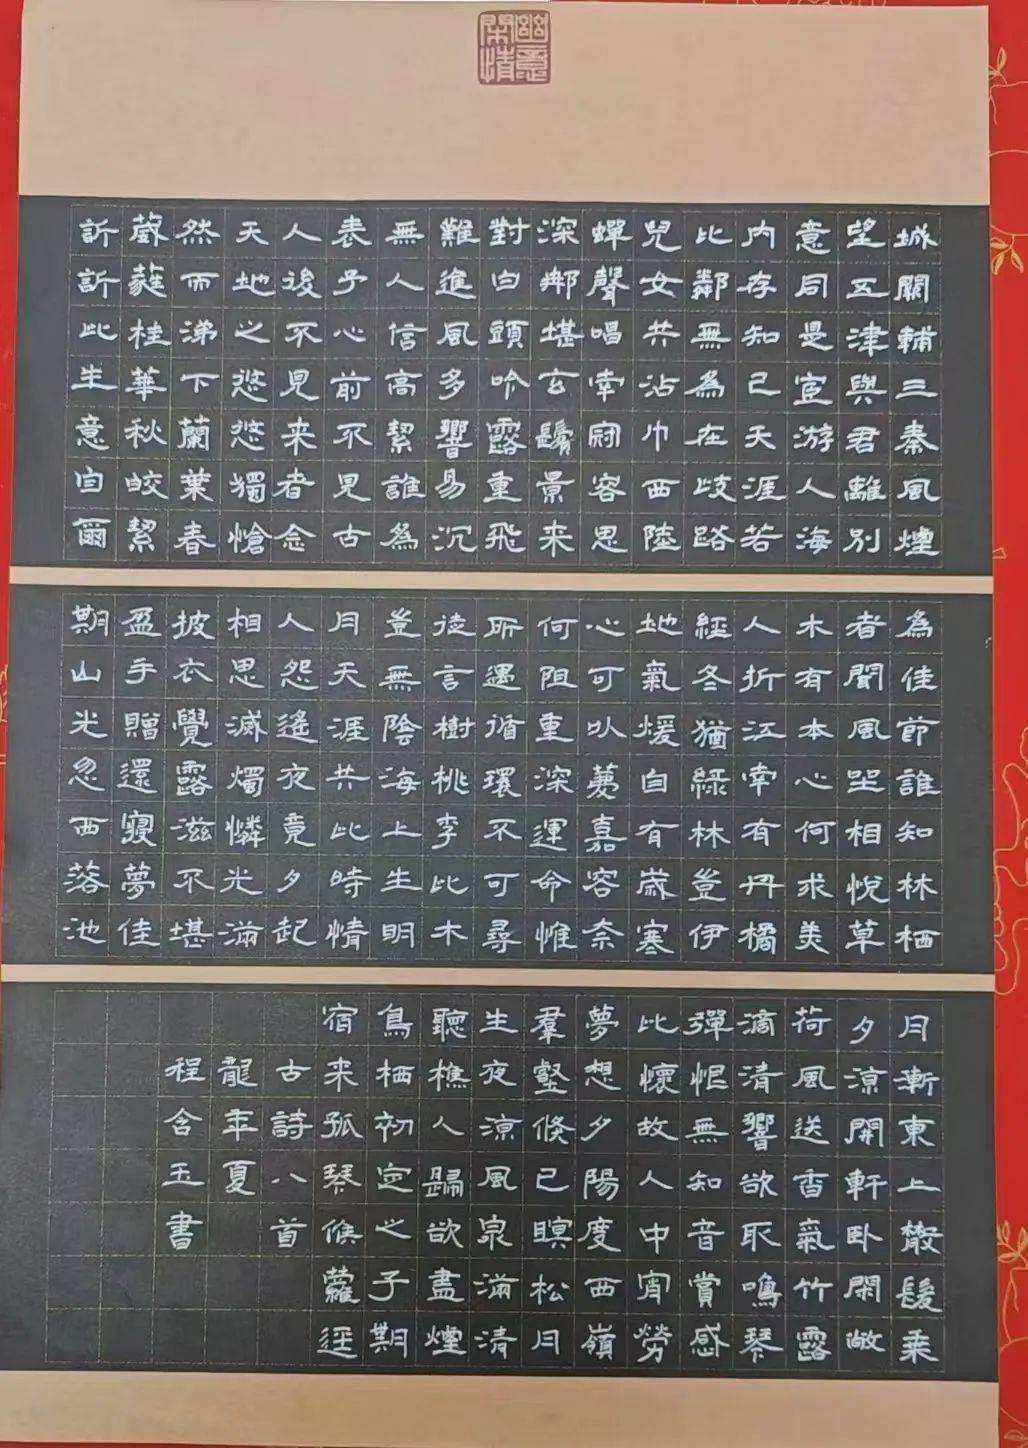 幽意
閑情
城闕輔三秦風煙
望五津與君離別
意同是宦游人海
内存知己天涯若
比鄰無為在歧路
兒女共沾巾西陸
蟬聲唱南冠容思
深那堪玄鬢景来
對白頭吟露重飛
難進風多響易沉
無人信高絜誰為
表予心前不見古
人後不見来者念
天地之悠悠獨愴
然而涕下蘭葉春
葳蕤桂華秋皎絜
訢訢此生意自爾
為佳節誰知林栖
者聞風坐相悅草
木有本心何求美
人折江南有丹橘
經冬猶綠林豈伊
地氣煖自有歲寒
心可以薦嘉容奈
何阻重深運命惟
所遇循環不可尋
徒言樹桃李此木
豈無陰海上生明
月天涯共此時情
人怨遙夜竟夕起
相思滅燭憐光滿
披衣覺露滋不堪
盈手贈還寢夢佳
期山光忽西落池
月漸東上散髮乘
夕涼開軒卧閑敞
荷風送香氣竹露
滴清響欲取鳴琴
彈恨無知音賞感
此懷故人中宵勞
夢想夕陽度西嶺
羣壑倏已暝松月
生夜涼風泉滿清
聽樵人歸欲盡煙
鳥栖初定之子期
宿来孤琴候蘿逕
古詩八首
龍年夏
程含玉書